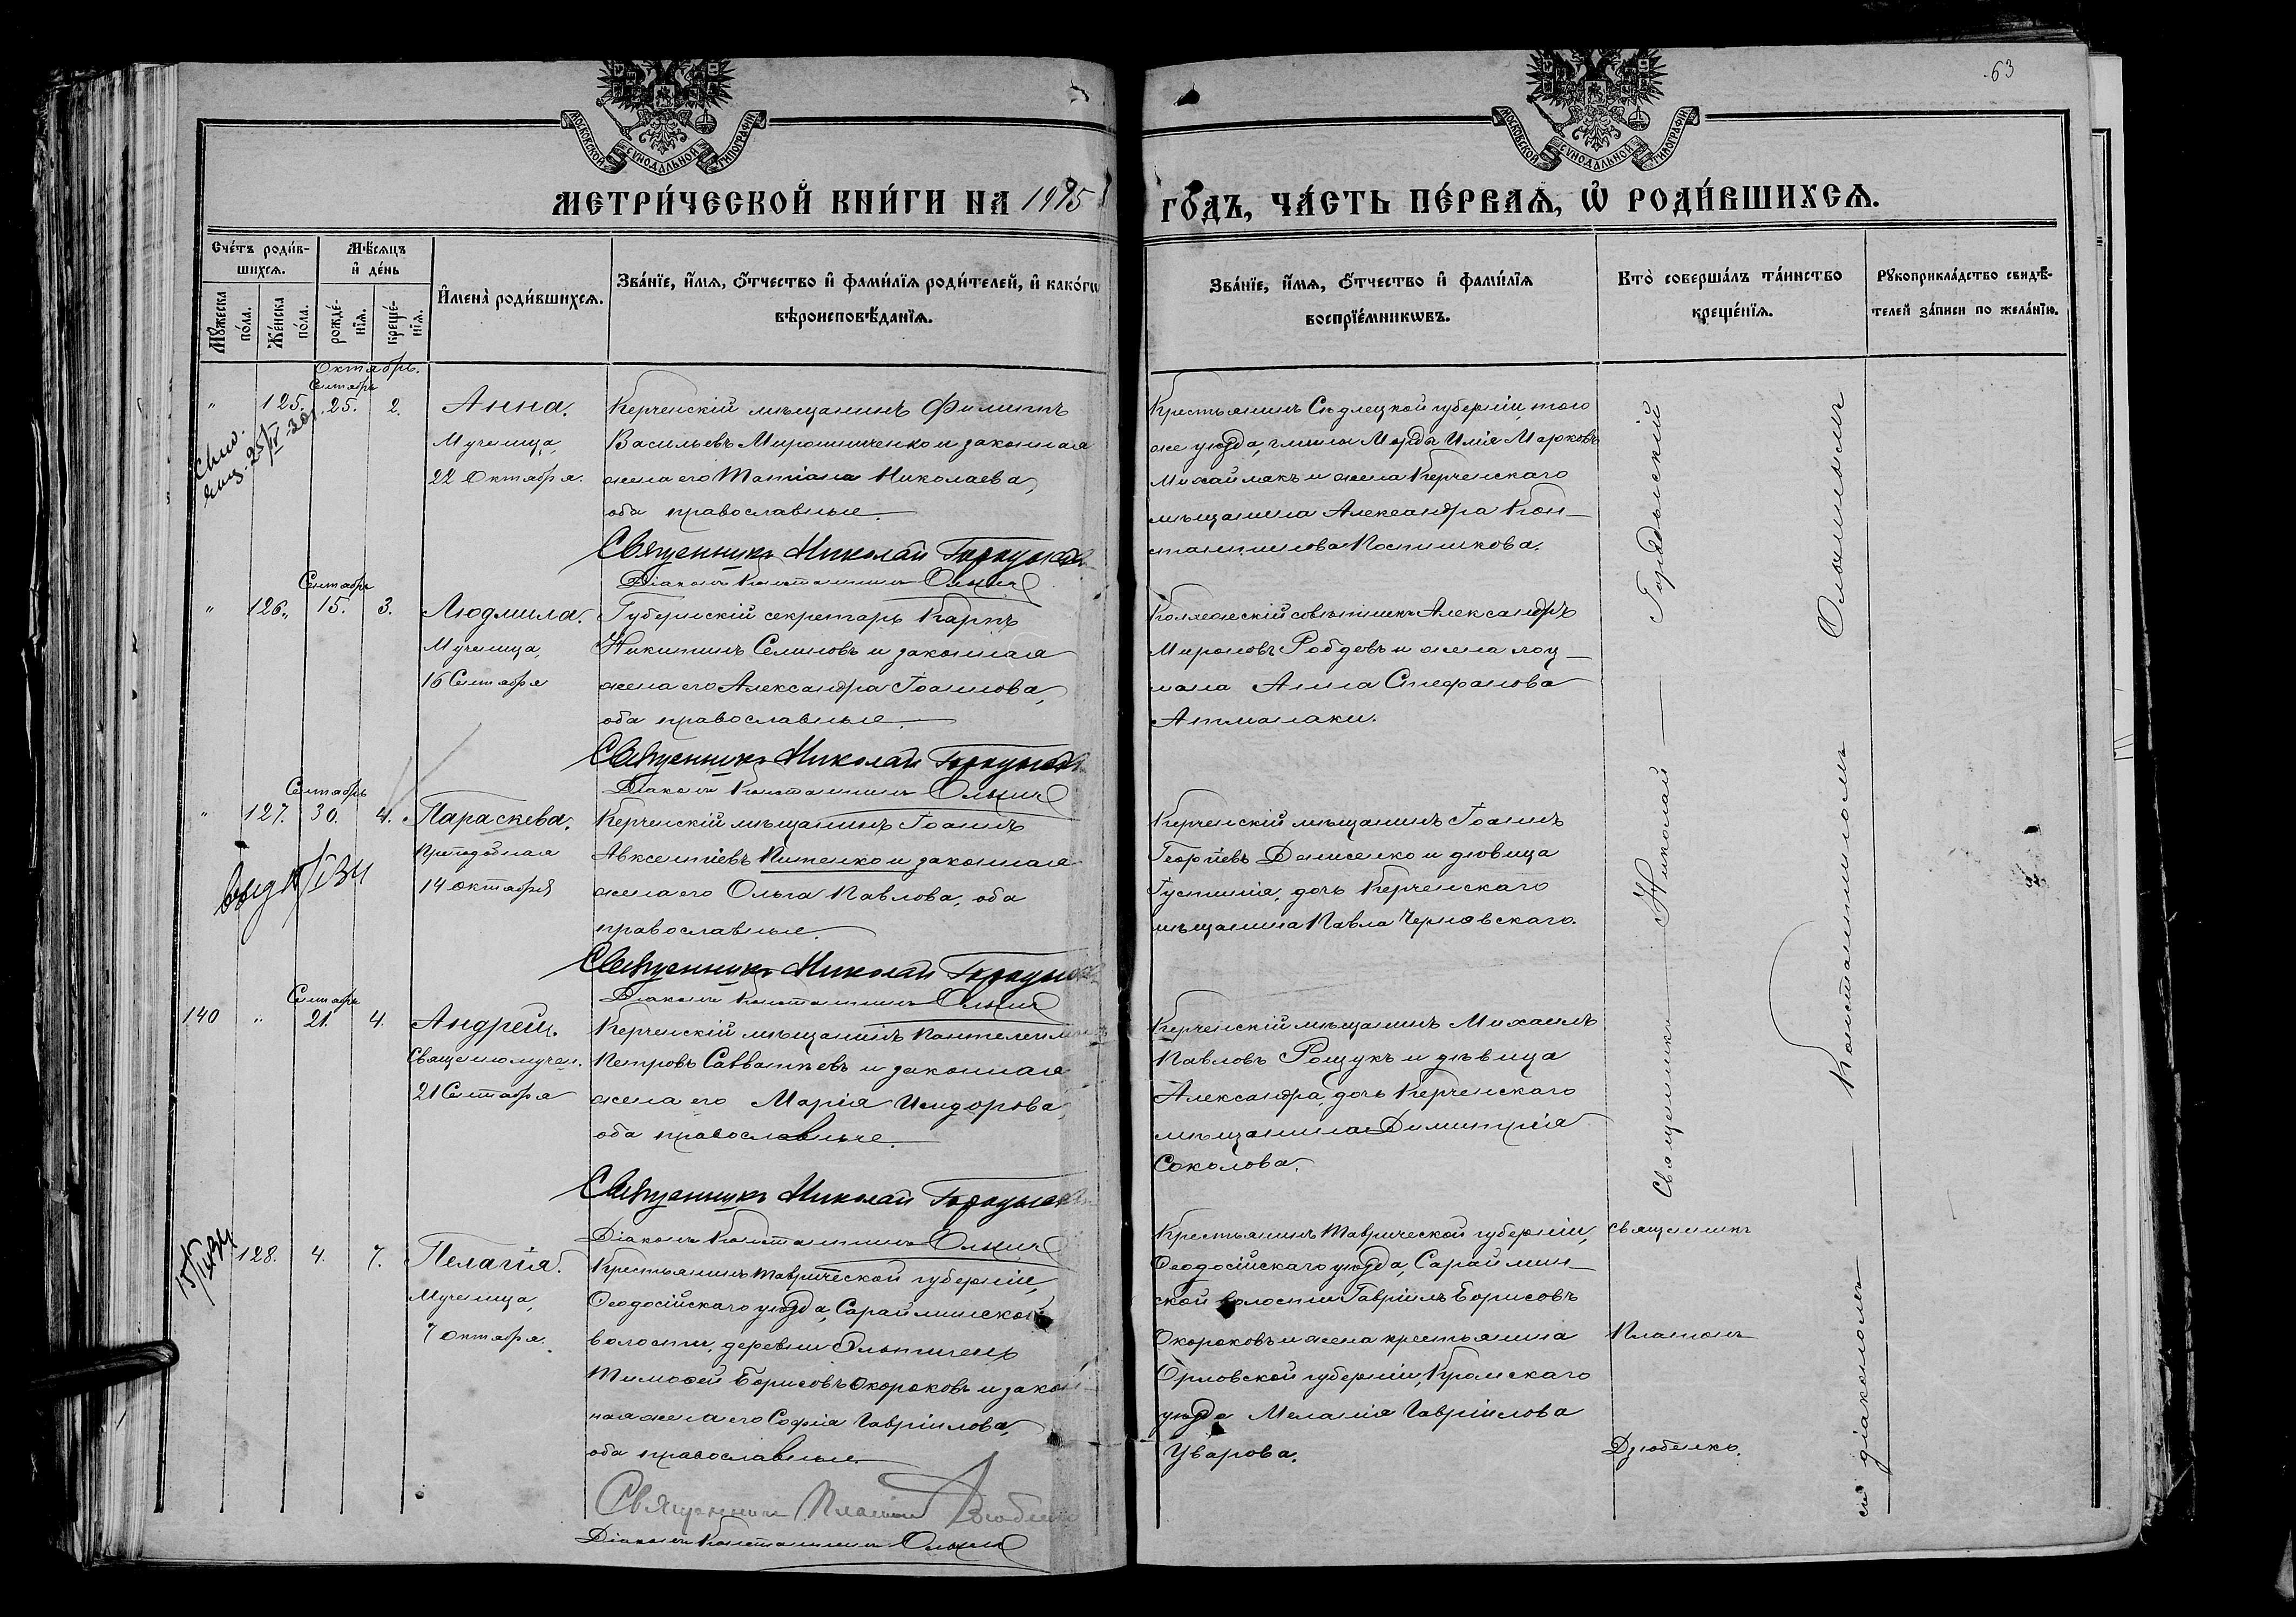 63
МОСКОВСКОЙ СѴНОДАЛЬНОЙ ТИПОГРАФІИ
МОСКОВСКОЙ СѴНОДАЛЬНОЙ ТИПОГРАФІИ
МЕТРИ́ЧЕСКОЙ КНИ́ГИ НА
ГО́ДЪ, ЧА́СТЬ ПЕ́РВАѦ, Ѡ҆ РОДИ́ВШИХСѦ.
Сче́тъ роди́в-
шихсѧ.
Мѣ́сѧцъ
и҆ де́нь
Мꙋ́жеска
по́ла.
Же́нска
по́ла.
рожде́-
нїѧ.
креще́-
нїѧ.
И҆мена̀ роди́вшихсѧ.
Зва́нїе, и҆́мѧ, ѻ҆́тчество и҆ фами́лїѧ роди́телей, и҆ како́гѡ
вѣроисповѣ́данїѧ.
Зва́нїе, и҆́мѧ, ѻ҆́тчество и҆ фами́лїѧ
воспрїе́мникѡвъ.
Кто̀ соверша́лъ та́инство
креще́нїѧ.
Рꙋкоприкла́дство свидѣ́-
телей за́писи по жела́нїю.
Октябрь.
Сентябрь
" 125. 25. 2.
Анна.
Мученица,
22 Октября.
Керченскій мѣщанинъ Филиппъ
Васильевъ Мирошниченко и законная
жена его Татіана Николаева,
оба православные.
Священникъ Николай
Діаконъ Константинъ
Крестьянинъ Сѣдлецкой губерніи, того
же уѣзда, гмины Морды Илія Марковъ
Михаймакъ и жена Керченскаго
мѣщанина Александра Кон-
стантинова Постникова.
Сентябрь
" 126. 15. 3.
Людмила.
Мученица,
16 Сентября
Губернскій секретарь Карпъ
Никитинъ Селиновъ и законная
жена его Александра Іоаннова,
оба православные.
Священникъ Николай
Діаконъ Константинъ
Коллежскій совѣтникъ Александръ
Мироновъ Робдевъ и жена лоц-
мана Анна Стефанова
Атманаки.
Сентябрь
" 127. 30. 4.
Параскева.
Преподобная
14 октября
Керченскій мѣщанинъ Іоаннъ
Авксентіевъ Китенко и законная
жена его Ольга Павлова, оба
православные.
Священникъ Николай
Діаконъ Константинъ
Керченскій мѣщанинъ Іоаннъ
Георгіевъ Денисенко и дѣвица
Іустинія, дочь Керченскаго
мѣщанина Павла Чернявскаго.
Сентябрь
140 " 21. 4.
Андрей.
Священномучен.
21 Сентября
Керченскій мѣщанинъ
Петровъ Савватѣевъ и законная
жена его Марія Исидорова,
оба православные.
Священникъ Николай
Діаконъ Константинъ
Керченскій мѣщанинъ Михаилъ
Павловъ Рощукъ и дѣвица
Александра, дочь Керченскаго
мѣщанина Димитрія
Соколова.
128. 4. 7.
Пелагія.
Мученица,
7 Октября.
Крестьянинъ Таврической губерніи,
Ѳеодосійскаго уѣзда, Сарайминской
волости, деревни
Тимоѳей Борисовъ Окороковъ и закон-
ная жена его Софія Гавріилова,
оба православные.
Священникъ Платонъ
Діаконъ Константинъ
Крестьянинъ Таврической губерніи,
Ѳеодосійскаго уѣзда, Сараймин-
ской волости Гавріилъ Борисовъ
Окороковъ и жена крестьянина
Орловской губерніи, Кромскаго
уѣзда Меланія Гавріилова
Уварова.
Священникъ
Платонъ
Дзюбенко.
Священникъ Николай
съ діакономъ Константиномъ